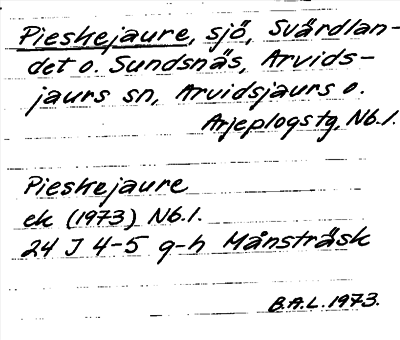 Pieskejaure, sjö, Svärdlan-
det o. Sundsnäs, Arvids-
jaurs sn, Arvidsjaurs o.
Arjeplogs tg, Nb.l.
Pieskejaure
ek (1973) Nb.l.
24 J 4-5 g-h Månsträsk
B.A.L. 1973.